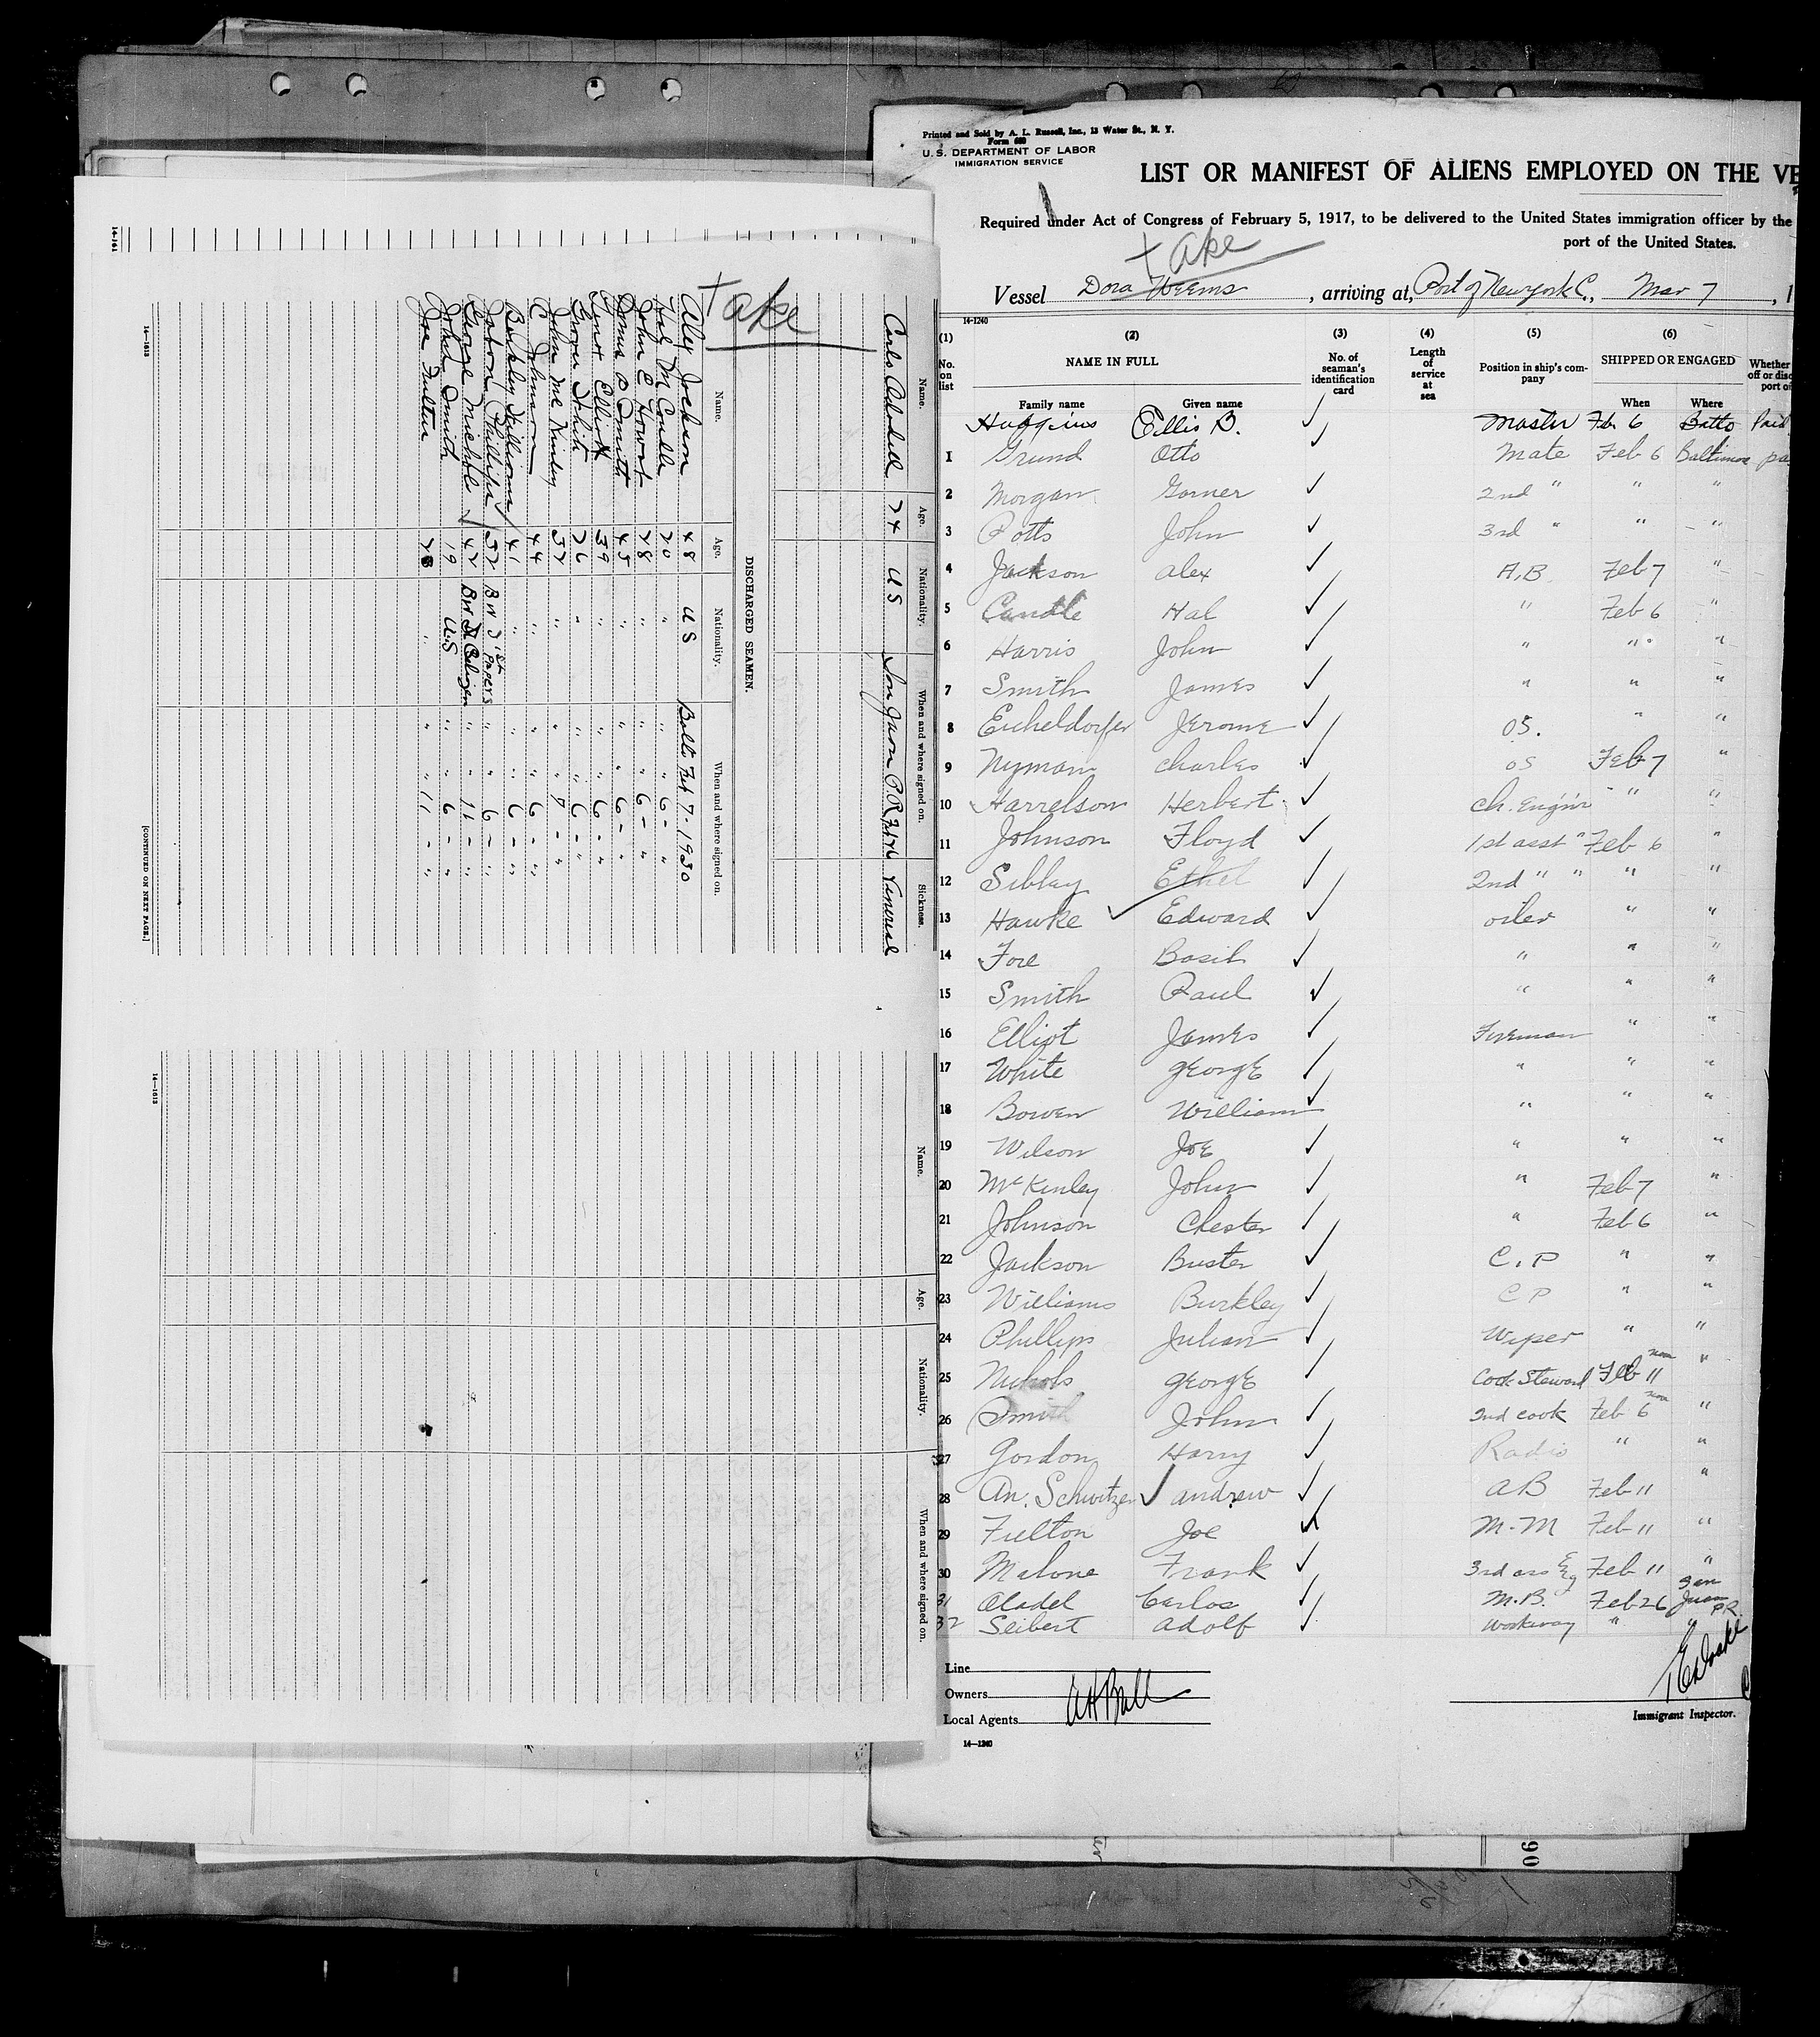 Printed and Sold by A. L. Russell, Inc., 13 Water St., N. Y.
Form 680
U. S. DEPARTMENT OF LABOR
IMMIGRATION SERVICE
LIST OR MANIFEST OF ALIENS EMPLOYED ON THE VE
Required under Act of Congress of February 5, 1917, to be delivered to the United States immigration officer by the
port of the United States.
Take
Vessel Dora Weems, arriving at, Port of New york C., Mar 7, 1
14-1240
(1) (2) (3) (4) (5) (6)
No. on list NAME IN FULL No. of seaman's identification card Length of service at sea Position in ship's company SHIPPED OR ENGAGED Whether
off or disc
port of
Family name Given name When Where
Huggins Ellis B. ✓ Master Feb 6 Balto Paid
1 Grund Otto ✓ Mate Feb 6 Baltimore pa
2 Morgan Garner ✓ 2nd " " "
3 Potts John ✓ 3rd " " "
4 Jackson alex ✓ A.B Feb 7 "
5 Caudle Hal ✓ " Feb 6 "
6 Harris John ✓ " " "
7 Smith James ✓ " " "
8 Eicheldorfer Jerome ✓ OS. " "
9 Nyman Charles ✓ OS Feb 7 "
10 Harrelson Herbert ✓ Ch. Engin'r " "
11 Johnson Floyd ✓ 1st asst " Feb 6 "
12 Sibley Ethel ✓ 2nd " " " "
13 Hawke ✓ Edward ✓ oiler " "
14 Fore Basil ✓ " " "
15 Smith Paul ✓ " " "
16 Elliot James ✓ Fireman " "
17 White George ✓ " " "
18 Bowen William ✓ " " "
19 Wilson Joe ✓ " " "
20 McKinley John ✓ " Feb 7 "
21 Johnson Chester ✓ " Feb 6 "
22 Jackson Buster ✓ C.P " "
23 Williams Burkley ✓ C P " "
24 Phillips Julian ✓ Wiper " "
25 Nichols George ✓ Cook Steward Feb 11 "
26 Smith John ✓ 2nd cook Feb 6 "
27 Gordon Harry ✓ Radio " "
28 An. Schwitzer ✓ andrew ✓ AB Feb 11 "
29 Fulton Joe ✓ M-M Feb 11 "
30 Malone Frank ✓ 3rd ass Eg Feb 11 "
31 Aladel Carlos ✓ M.B. Feb 26 San Juan P.R.
32 Seibert Adolf ✓ Workaway " "
Line
Owners
Local Agents AH Bull
Immigrant Inspector.
14-1240
90
14-161
Take
Name. Age. Nationality. When and where signed on. Sickness.
Carlo Aladel 24 US San Juan P.R. Venereal
DISCHARGED SEAMEN.
Name. Age. Nationality. When and where signed on.
Alley Jackson 48 U S Balto Feb 7-1930
Hal M Caudle 20 " " " 6- "
John E Howard 28 " " " 6- "
James B Smith 45 " " " 6- "
Elliott 39 " " " 6- "
White 26 " " " 6- "
John Mc Kinley 37 " " " 7- "
C Johnson 44 " " " 6- "
Burkley Williams 41 " " " 6- "
Phillips ✓ 32 BWI 1st Papers " " 6- "
George Nicholds ✓ 42 " " 11- "
John Smith 19 U.S " " 6- "
Joe Fulton 28 " " " 11- "
14-1613
[CONTINUED ON NEXT PAGE.]
Name. Age. Nationality. When and where signed on.
14-1613